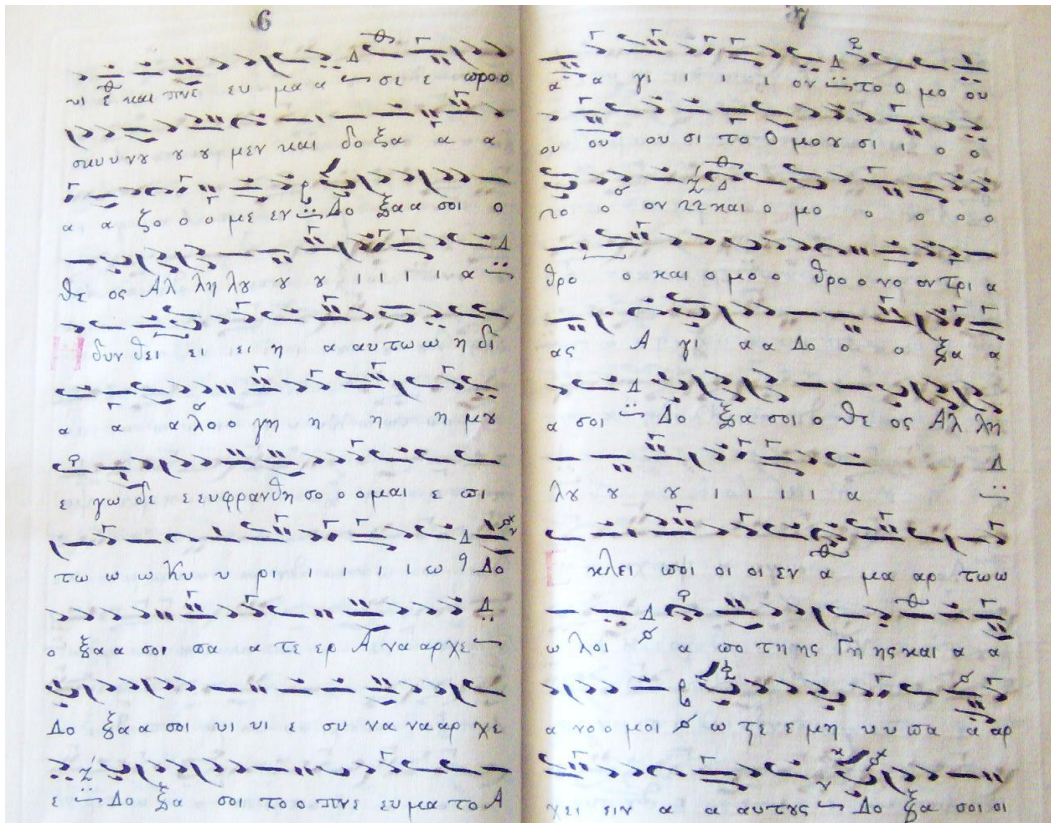 6
υι ε και πνε ευ μα α σε ε προ ο
σκυ υ νȣ ȣ ȣ μεν και δο ξα α α
α α ζο ο ο με εν Δο ξα α σοι ο
θε ος Αλ λη λȣ ȣ ȣ ι ι ι ι α
δυν θει ει ει η α αυ τω ω η δι
α α α λο ο γη η η η μȣ
ε γω δε ε ευφρανθη σο ο ο μαι ε πι
τω ω ω Κυ υ ρι ι ι ι ι ω Δο
ο ξα α σοι πα α τε ερ Α να αρ χε
Δο ξα α σοι υι υι ε συ να να αρ χε
ε Δο ξα σοι το ο πνε ευ μα το Α
7
α α γι ι ι ι ον το ο μο ου
ου ου ου σι το Ο μο ȣ σι ι ο ο
το ο ον και ο μο ο ο ο ο
θρο ο και ο μο ο θρο ο νο ον τρι α
ας Α γι α α Δο ο ο ξα α
α σοι Δο ξα σοι ο θε ος Αλ λη
λȣ ȣ ȣ ι ι ι ι α
κλει ποι οι οι εν α μα αρ τω ω
ω λοι α πο τη ης Γη ης και α α
α νο ο μοι ω τζε ε μη υ υ πα α αρ
χει ειν α α αυ τȣς Δο ξα σοι οι